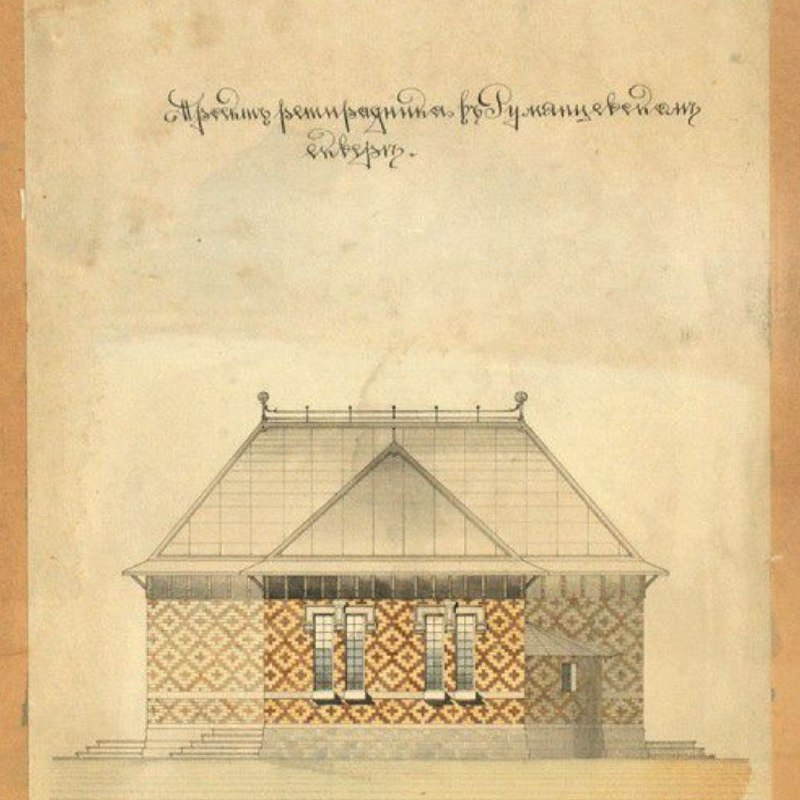 Проектъ ретирадника въ Румянцевскомъ
скверѣ.